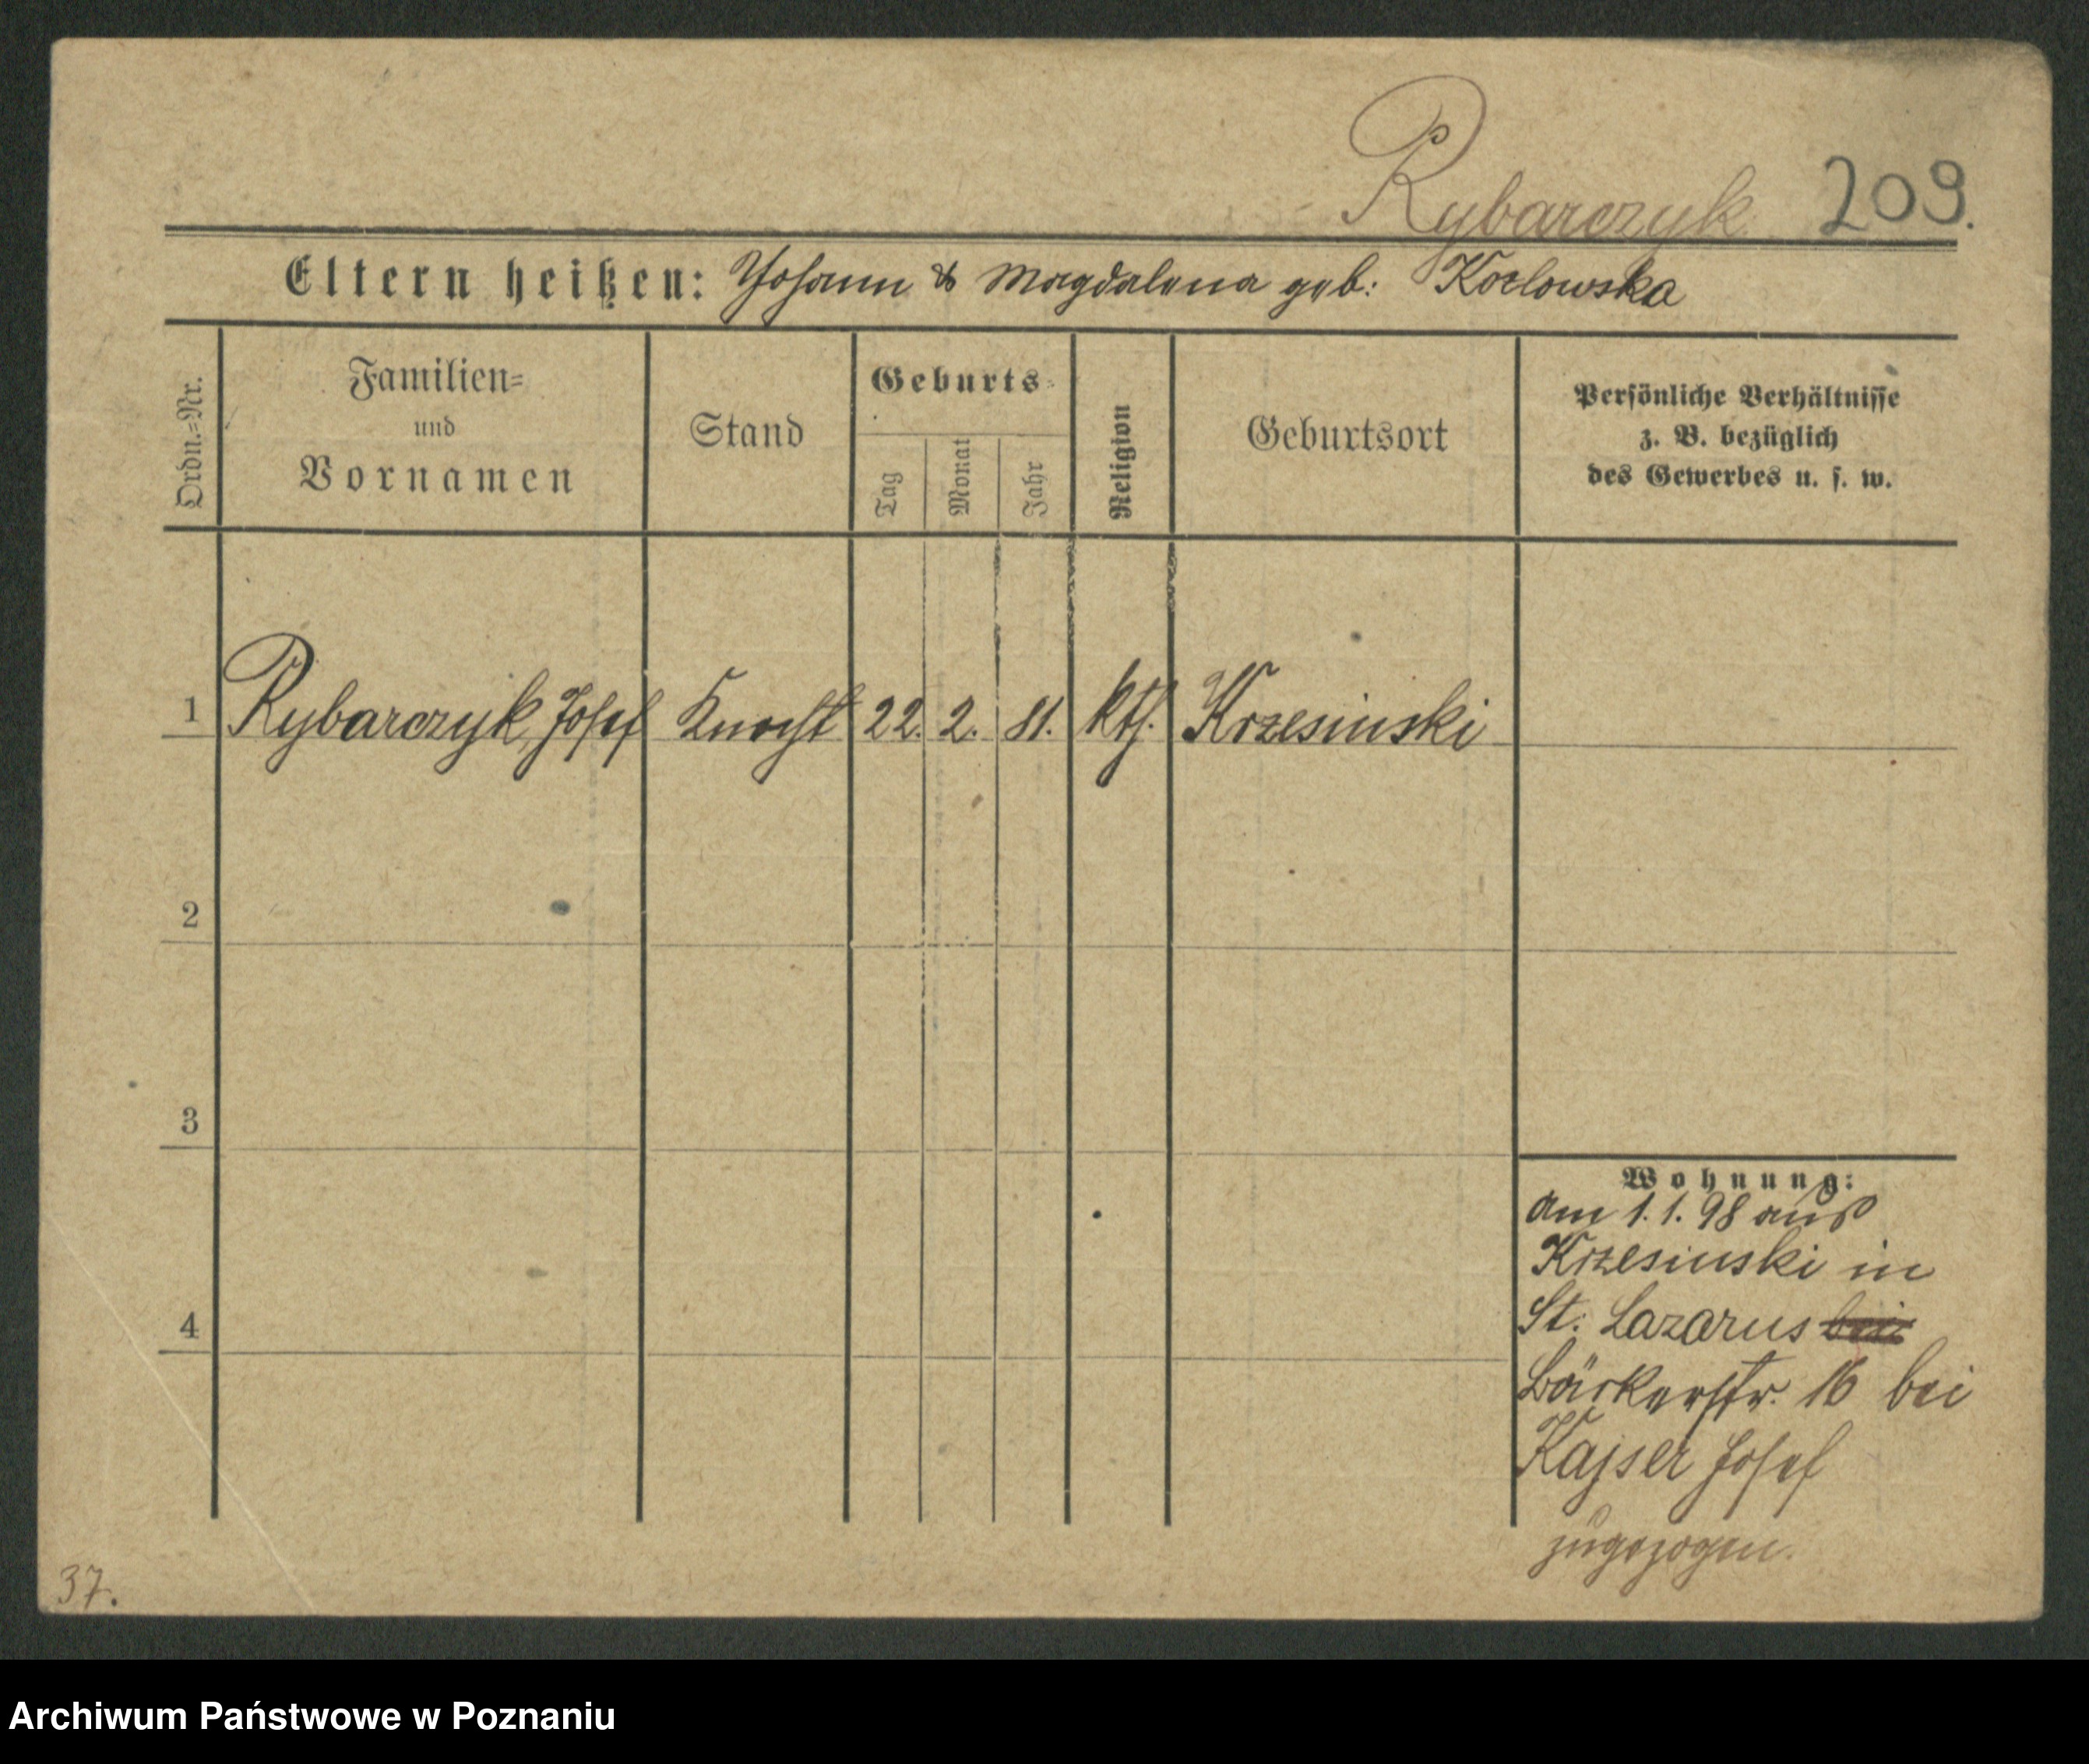 Rybarczyk 209.
Eltern heißen: Johann & Magdalena geb: Kozlowska
Ordn.=Nr.
Familien=
und
Vornamen
Stand
Geburts=
Tag
Monat
Jahr
Religion
Geburtsort
Persönliche Verhältnisse
z. B. bezüglich
des Gewerbes u. s. w.
1 Rybarczyk, Josef Knecht 22. 2. 81. kth. Krzesinski
2
3
4
Wohnung:
am 1. 1. 98 aus
Krzesinski in
St. Lazarus
Bäckerstr. 16 bei
Kajser Josef
zugezogen.
37.
Archiwum Państwowe w Poznaniu